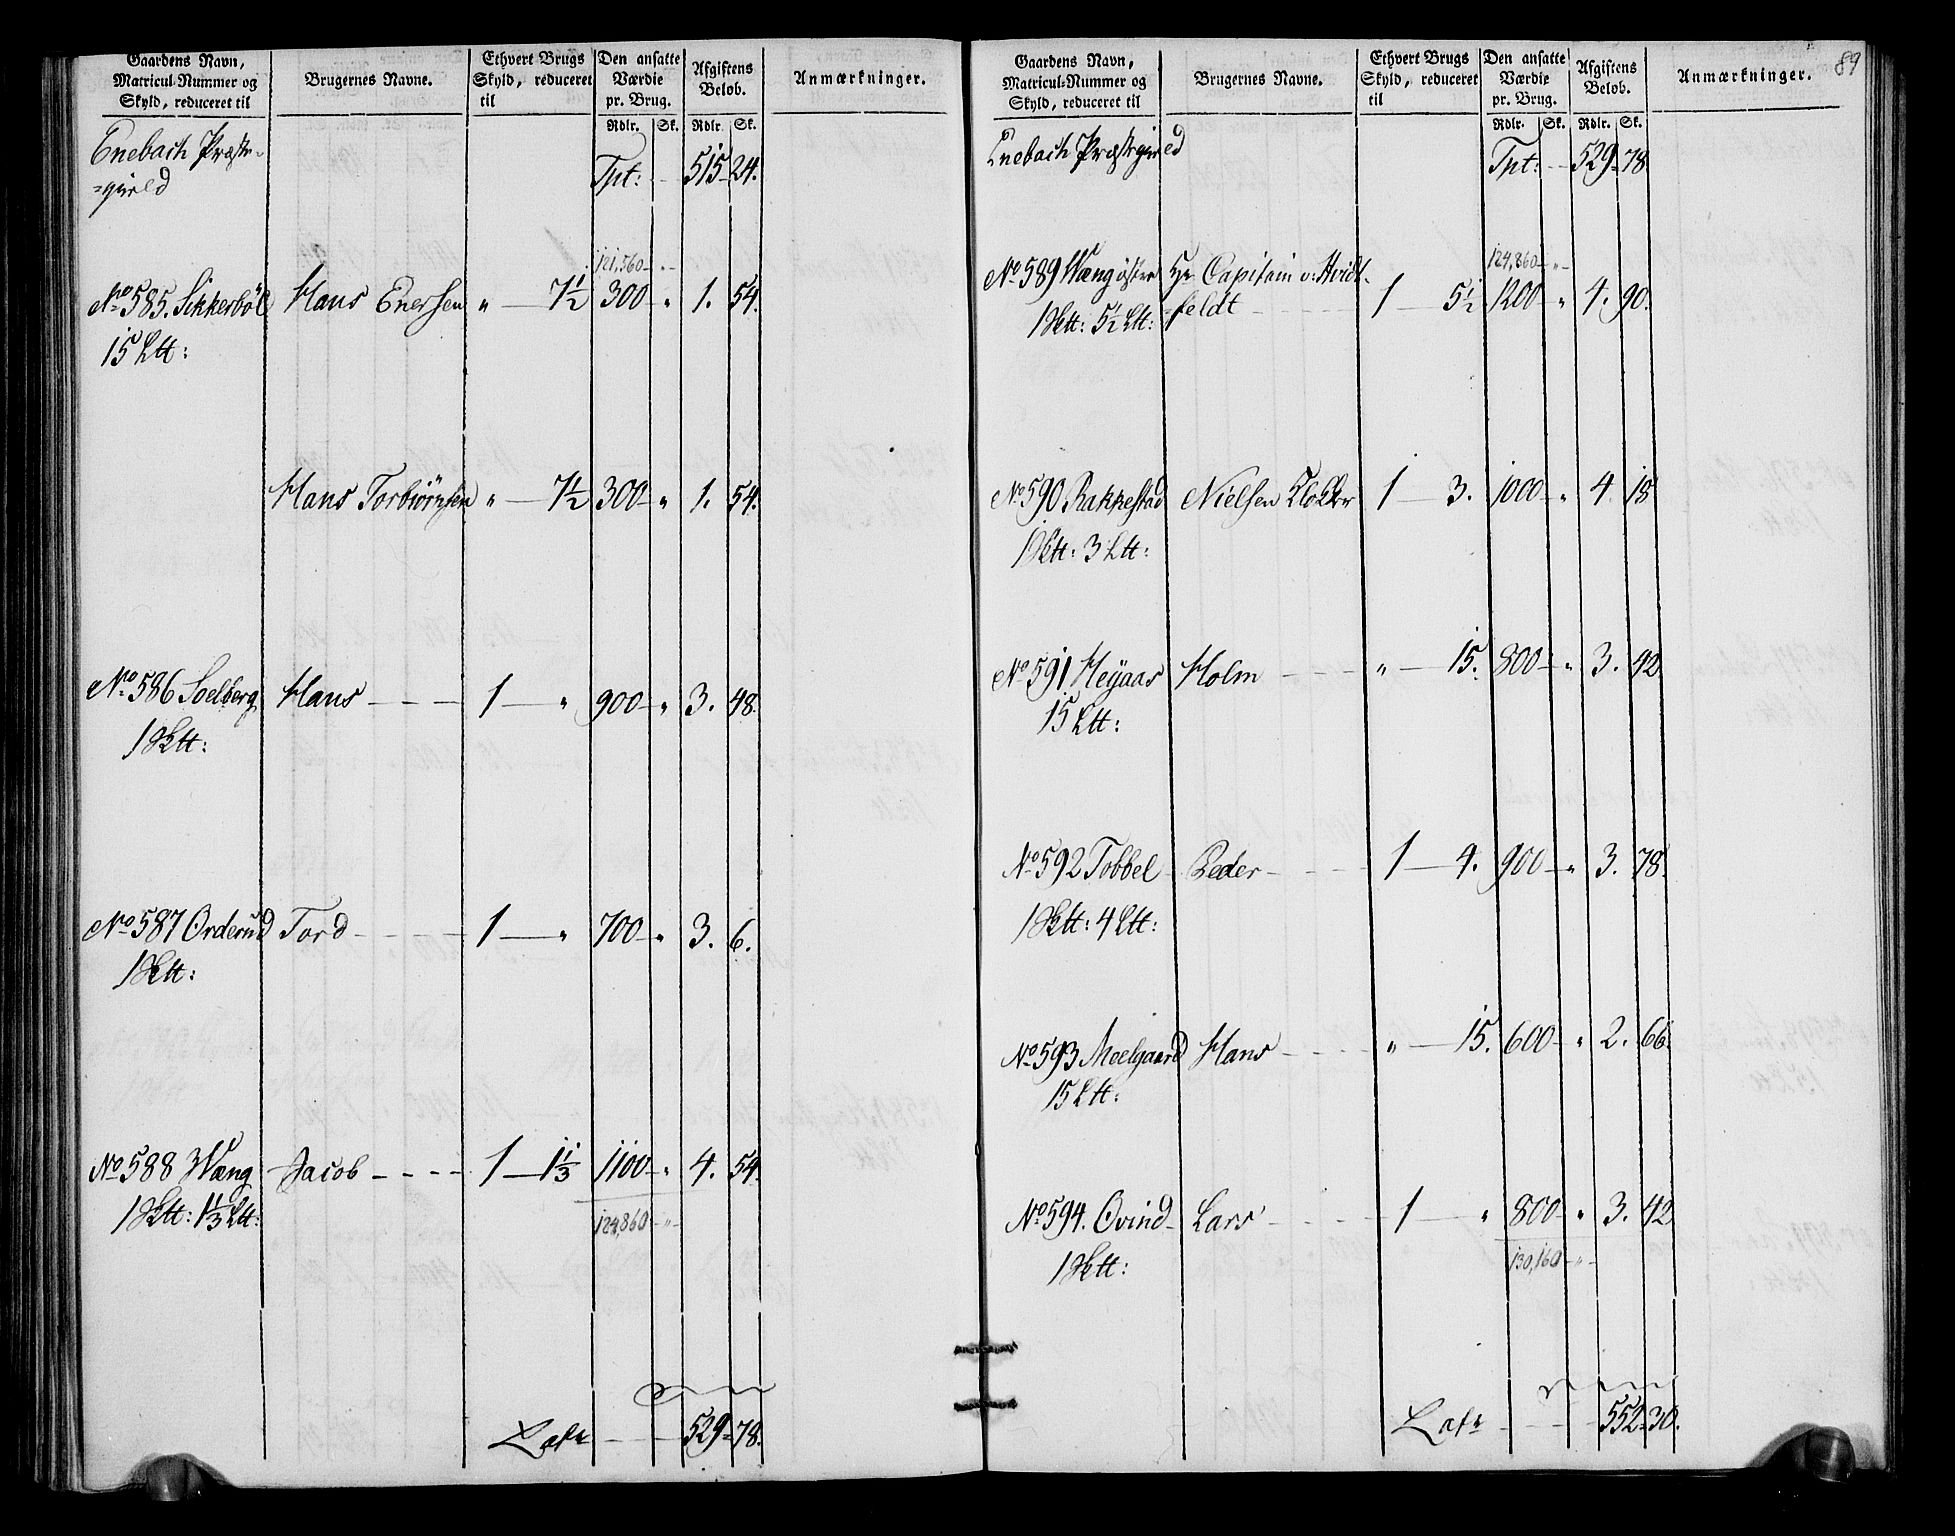 Gaardens Navn, Matricul-Nummer og Skyld, reduceret til | Brugernes Navne. | Ethvert Brugs Skyld, reduceret til | Den ansatte Værdie pr. Brug. | Afgiftens Beløb. | Anmærkninger.
Rdlr. Sk. Rdlr. Sk.
Enebach Præste-
=gield Tpt: 515 24.
121,560 "
No 585. Sikkerböl Hans Enersen " 7½ 300 " 1. 54.
15 Ltt:
Hans Torbiörnsen " 7½ 300 " 1. 54.
No 586 Soelberg Hans 1 " 900 " 3. 48.
1 Sktt:
No 587 Orderud Tord 1 " 700 " 3. 6.
1 Sktt:
No 588 Wæng Jacob 1 1⅓ 1100 " 4. 54.
1 Sktt: 1⅓ Ltt:
124,860 "
Lat 529 78.
89
Gaardens Navn, Matricul-Nummer og Skyld, reduceret til | Brugernes Navne. | Ethvert Brugs Skyld, reduceret til | Den ansatte Værdie pr. Brug. | Afgiftens Beløb. | Anmærkninger.
Rdlr. Sk. Rdlr. Sk.
Enebach Præstegield Tpt: 529 78
124,860 "
No 589 Wæng öster Hr Capitain v: Hvidt-
1 Sktt: 5½ Ltt: =feldt 1 5½ 1200 " 4. 90.
No 590 Rakkestad Nielsen Klokker 1 3. 1000 " 4 18
1 Sktt: 3 Ltt:
No 591 Heyaas Holm " 15. 800 " 3. 42
15 Ltt:
No 592 Tobbel Peder 1 4. 900 " 3. 78.
1 Sktt: 4 Ltt:
No 593 Moelgaard Hans " 15. 600 " 2. 66.
15 Ltt:
No 594. Ovind Lars 1 " 800 " 3. 42
1 Sktt:
130,160 "
Lat 552 30.